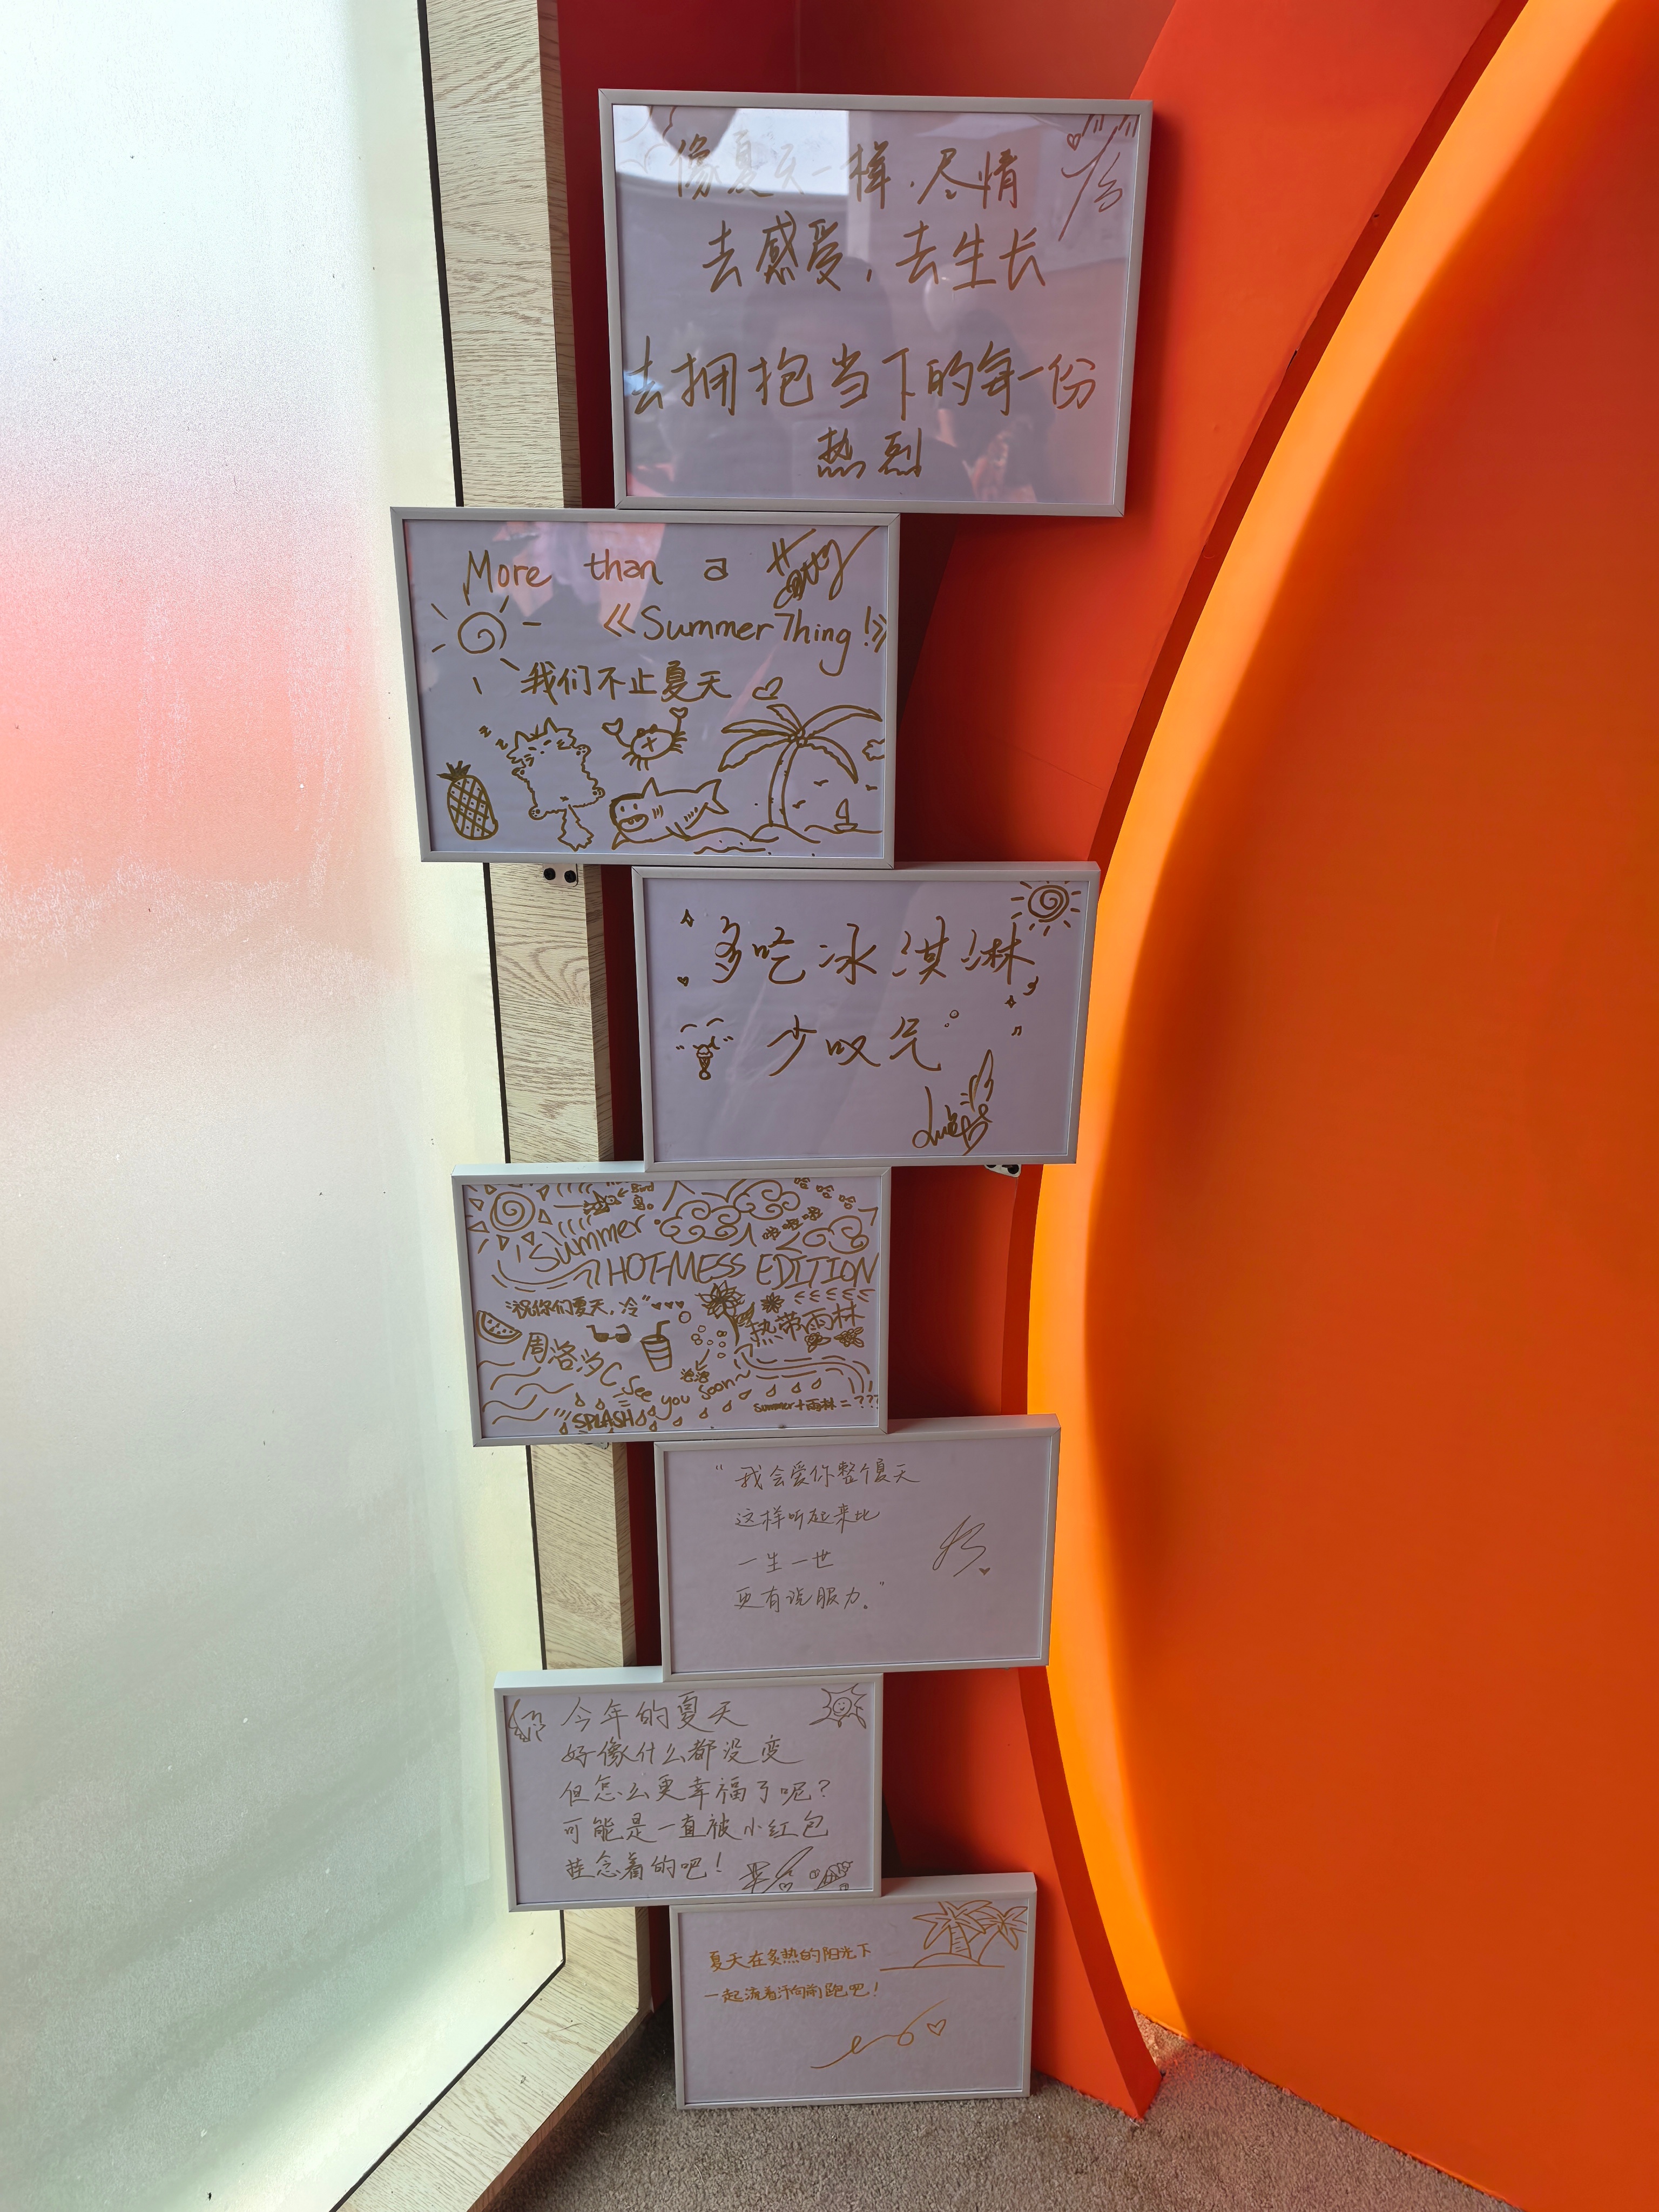 像夏天一样,尽情
去感受,去生长
去拥抱当下的每一份
热烈
More than a
《Summer Thing!》
我们不止夏天
多吃冰淇淋
少叹气
Bird
鸟。
Summer
HOT-MESS EDITION
"祝你们夏天,冷"
热带雨林
周洛汐C
See you soon~
SPLASH
Summer+雨林=???
"我会爱你整个夏天
这样听起来比
一生一世
更有说服力。"
今年的夏天
好像什么都没变
但怎么更幸福了呢?
可能是一直被小红包
挂念着的吧!
夏天在炙热的阳光下
一起流着汗向前跑吧!